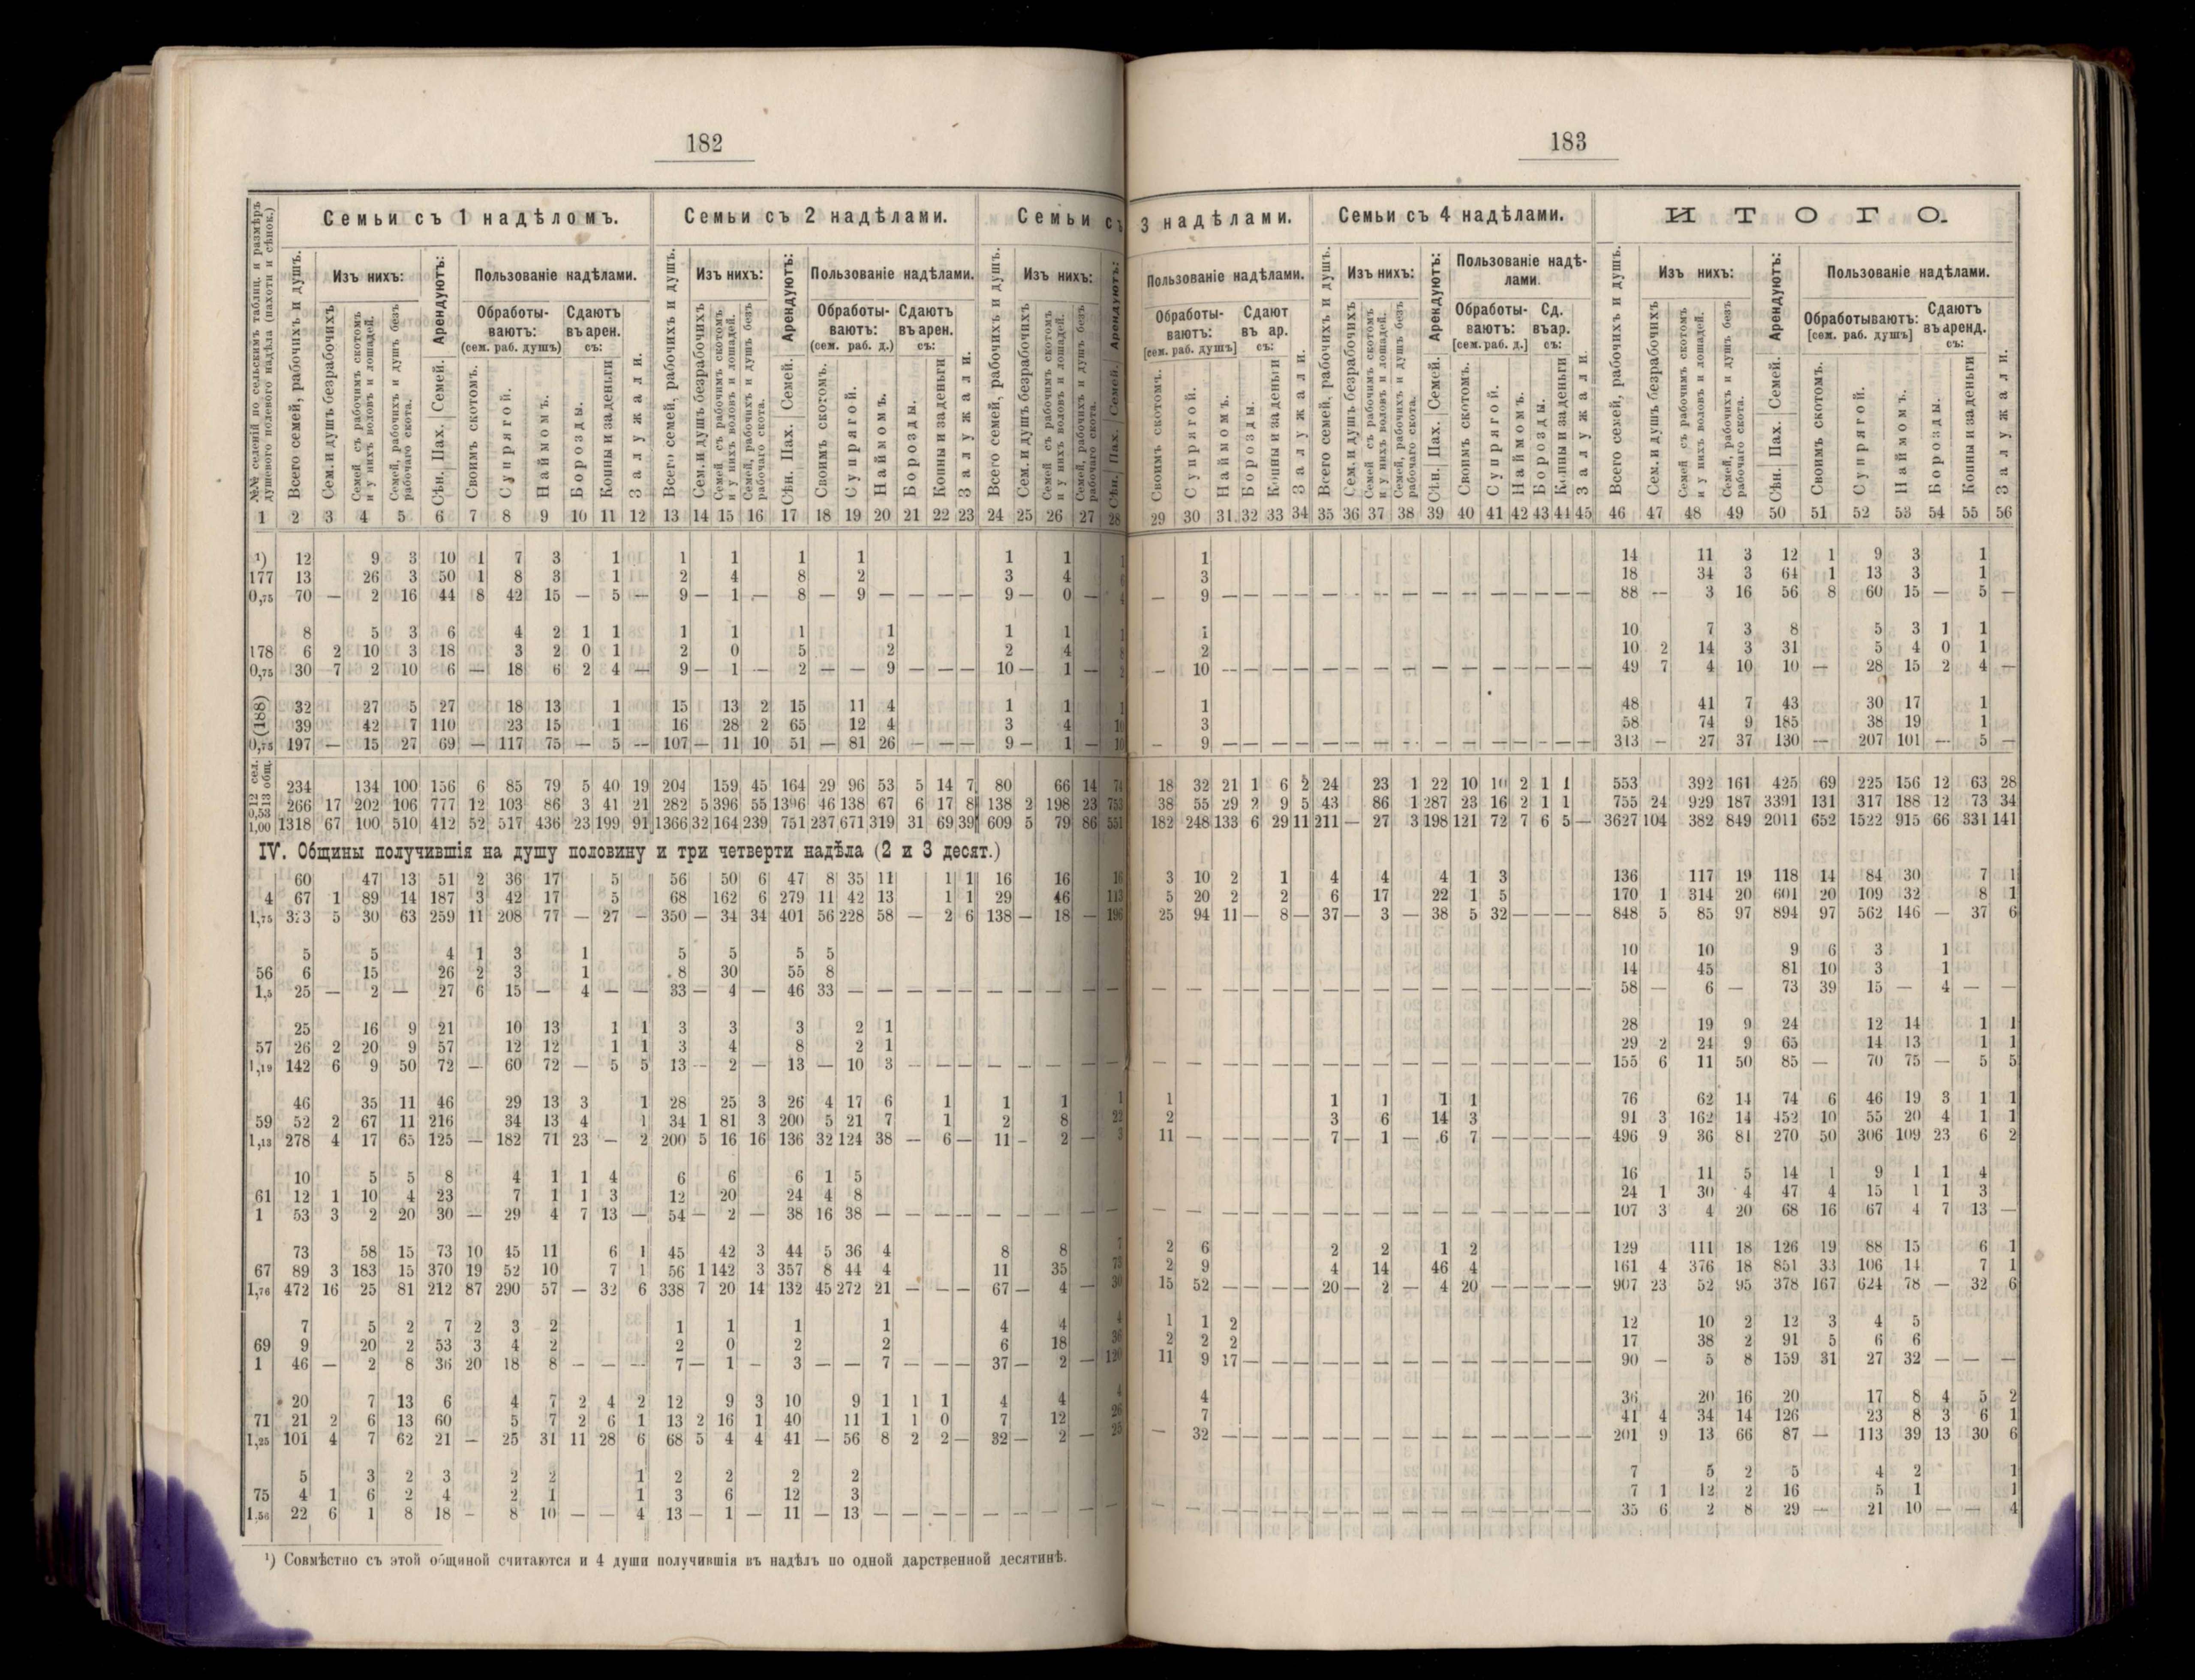 182
Семьи съ 1 надѣломъ. Семьи съ 2 надѣлами. Семьи съ
№№ селеній по сельскимъ таблиц. и размѣръ душеваго полеваго надѣла (пахоти и сѣнок.)
Всего семей, рабочихъ и душъ.
Изъ нихъ: Арендуютъ: Пользованіе надѣлами. Изъ нихъ: Арендуютъ: Пользованіе надѣлами. Изъ нихъ: Арендуютъ:
Обработываютъ: (сем. раб. душъ) Сдаютъ въ арен. съ: Обработываютъ: (сем. раб. д.) Сдаютъ въ арен. съ:
Сем. и душъ безрабочихъ
Семей съ рабочимъ скотомъ и у нихъ воловъ и лошадей.
Семей, рабочихъ и душъ безъ рабочаго скота.
Сѣн. Пах. Семей.
Своимъ скотомъ. Супрягой. Наймомъ. Борозды. Копны и за деньги Залужали.
1 2 3 4 5 6 7 8 9 10 11 12 13 14 15 16 17 18 19 20 21 22 23 24 25 26 27 28
¹) 12 9 3 10 1 7 3 1 1 1 1 1 1 1 1
177 13 26 3 50 1 8 3 1 2 4 8 2 3 4 6
0,75 70 — 2 16 44 8 42 15 — 5 — 9 — 1 — 8 — 9 — — — — 9 — 0 — 4
8 5 3 6 4 2 1 1 1 1 1 1 1 1 1
178 6 2 10 3 18 3 2 0 1 2 0 5 2 2 4 8
0,75 30 7 2 10 6 — 18 6 2 4 — 9 — 1 — 2 — — 9 — — — 10 — 1 — 2
32 27 5 27 18 13 1 15 13 2 15 11 4 1 1 1
(188) 39 42 7 110 23 15 1 16 28 2 65 12 4 3 4 10
0,75 197 — 15 27 69 — 117 75 — 5 — 107 — 11 10 51 — 81 26 — — — 9 — 1 — 10
12 сел. 13 общ. 234 134 100 156 6 85 79 5 40 19 204 159 45 164 29 96 53 5 14 7 80 66 14 74
0,53 266 17 202 106 777 12 103 86 3 41 21 282 5 396 55 1396 46 138 67 6 17 8 138 2 198 23 753
1,00 1318 67 100 510 412 52 517 436 23 199 91 1366 32 164 239 751 237 671 319 31 69 39 609 5 79 86 551
IV. Общины получившія на душу половину и три четверти надѣла (2 и 3 десят.)
60 47 13 51 2 36 17 5 56 50 6 47 8 35 11 1 1 16 16 16
4 67 1 89 14 187 3 42 17 5 68 162 6 279 11 42 13 1 1 29 46 113
1,75 323 5 30 63 259 11 208 77 — 27 — 350 — 34 34 401 56 228 58 — 2 6 138 — 18 — 196
5 5 4 1 3 1 5 5 5 5
56 6 15 26 2 3 1 8 30 55 8
1,5 25 — 2 — 27 6 15 — 4 — — 33 — 4 — 46 33 — — — — — — — — — —
25 16 9 21 10 13 1 1 3 3 3 2 1
57 26 2 20 9 57 12 12 1 1 3 4 8 2 1
1,19 142 6 9 50 72 — 60 72 — 5 5 13 — 2 — 13 — 10 3 — — — — — — — —
46 35 11 46 29 13 3 1 28 25 3 26 4 17 6 1 1 1 1
59 52 2 67 11 216 34 13 4 1 34 1 81 3 200 5 21 7 1 2 8 22
1,13 278 4 17 65 125 — 182 71 23 — 2 200 5 16 16 136 32 124 38 — 6 — 11 — 2 — 3
10 5 5 8 4 1 1 4 6 6 6 1 5
61 12 1 10 4 23 7 1 1 3 12 20 24 4 8
1 53 3 2 20 30 — 29 4 7 13 — 54 — 2 — 38 16 38 — — — — — — — — —
73 58 15 73 10 45 11 6 1 45 42 3 44 5 36 4 8 8 7
67 89 3 183 15 370 19 52 10 7 1 56 1 142 3 357 8 44 4 11 35 73
1,76 472 16 25 81 212 87 290 57 — 32 6 338 7 20 14 132 45 272 21 — — — 67 — 4 — 30
7 5 2 7 2 3 2 1 1 1 1 4 4 4
69 9 20 2 53 3 4 2 2 0 2 2 6 18 36
1 46 — 2 8 36 20 18 8 — — — 7 — 1 — 3 — — 7 — — — 37 — 2 — 120
20 7 13 6 4 7 2 4 2 12 9 3 10 9 1 1 1 4 4 4
71 21 2 6 13 60 5 7 2 6 1 13 2 16 1 40 11 1 1 0 7 12 26
1,25 101 4 7 62 21 — 25 31 11 28 6 68 5 4 4 41 — 56 8 2 2 — 32 — 2 — 25
5 3 2 3 2 2 1 2 2 2 2
75 4 1 6 2 4 2 1 1 3 6 12 3
1,56 22 6 1 8 18 — 8 10 — — 4 13 — 1 — 11 — 13 — — — — — — — — —
¹) Совмѣстно съ этой общиной считаются и 4 души получившія въ надѣлъ по одной дарственной десятинѣ.
183
3 надѣлами. Семьи съ 4 надѣлами. ИТОГО.
Пользованіе надѣлами. Всего семей, рабочихъ и душъ. Изъ нихъ: Арендуютъ: Пользованіе надѣлами. Всего семей, рабочихъ и душъ. Изъ нихъ: Арендуютъ: Пользованіе надѣлами.
Обработываютъ: [сем. раб. душъ] Сдают въ ар. съ: Обработываютъ: [сем. раб. д.] Сд. въ ар. съ: Обработываютъ: [сем. раб. душъ] Сдаютъ въ аренд. съ:
Своимъ скотомъ. Супрягой. Наймомъ. Борозды. Копны и за деньги Залужали.
29 30 31 32 33 34 35 36 37 38 39 40 41 42 43 44 45 46 47 48 49 50 51 52 53 54 55 56
1 14 11 3 12 1 9 3 1
3 18 34 3 64 1 13 3 1
— 9 — — — — — — — — — — — — — — — 88 — 3 16 56 8 60 15 — 5 —
1 10 7 3 8 5 3 1 1
2 10 2 14 3 31 5 4 0 1
— 10 — — — — — — — — — — — — — — — 49 7 4 10 10 — 28 15 2 4 —
1 48 41 7 43 30 17 1
3 58 74 9 185 38 19 1
— 9 — — — — — — — — — — — — — — — 313 — 27 37 130 — 207 101 — 5 —
18 32 21 1 6 2 24 23 1 22 10 10 2 1 1 553 392 161 425 69 225 156 12 63 28
38 55 29 2 9 5 43 86 1 287 23 16 2 1 1 755 24 929 187 3391 131 317 188 12 73 34
182 248 133 6 29 11 211 — 27 3 198 121 72 7 6 5 — 3627 104 382 849 2011 652 1522 915 66 331 141
3 10 2 1 4 4 4 1 3 136 117 19 118 14 84 30 7 1
5 20 2 2 6 17 22 1 5 170 1 314 20 601 20 109 32 8 1
25 94 11 — 8 — 37 — 3 — 38 5 32 — — — — 848 5 85 97 894 97 562 146 — 37 6
10 10 9 6 3 1
14 45 81 10 3 1
— — — — — — — — — — — — — — — — — 58 — 6 — 73 39 15 — 4 — —
28 19 9 24 12 14 1 1
29 2 24 9 65 14 13 1 1
— — — — — — — — — — — — — — — — — 155 6 11 50 85 — 70 75 — 5 5
1 1 1 1 1 76 62 14 74 6 46 19 3 1 1
2 3 6 14 3 91 3 162 14 452 10 55 20 4 1 1
11 — — — — — 7 — 1 — 6 7 — — — — — 496 9 36 81 270 50 306 109 23 6 2
16 11 5 14 1 9 1 1 4
24 1 30 4 47 4 15 1 1 3
— — — — — — — — — — — — — — — — — 107 3 4 20 68 16 67 4 7 13 —
2 6 2 2 1 2 129 111 18 126 19 88 15 6 1
2 9 4 14 46 4 161 4 376 18 851 33 106 14 7 1
15 52 — — — — 20 — 2 — 4 20 — — — — — 907 23 52 95 378 167 624 78 — 32 6
1 1 2 12 10 2 12 3 4 5
2 2 2 17 38 2 91 5 6 6
11 9 17 — — — — — — — — — — — — — — 90 — 5 8 159 31 27 32 — — —
4 36 20 16 20 17 8 4 5 2
7 41 4 34 14 126 23 8 3 6 1
— 32 — — — — — — — — — — — — — — — 201 9 13 66 87 — 113 39 13 30 6
7 5 2 5 4 2 1
7 1 12 2 16 5 1 1
— — — — — — — — — — — — — — — — — 35 6 2 8 29 — 21 10 — — 4